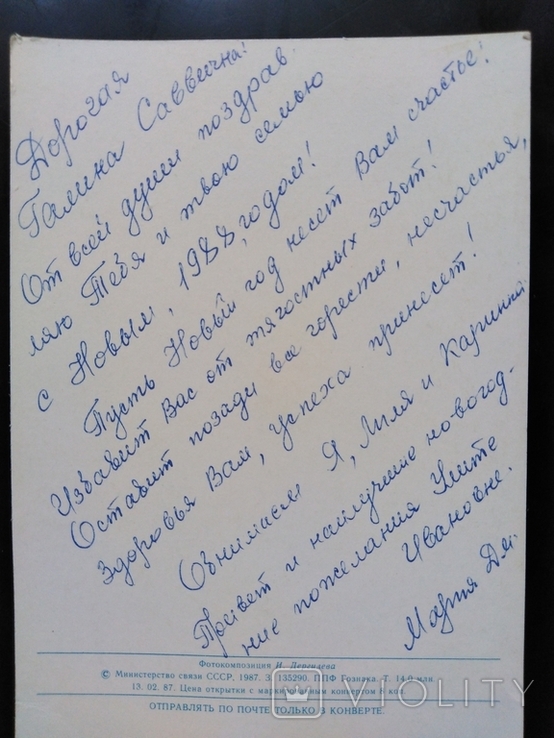 Дорогая
Галина Саввична!
От всей души поздрав-
ляю Тебя и твою семью
с Новым, 1988, годом!
Пусть Новый год несет Вам счастье!
Избавит Вас от тягостных забот!
Оставит позади все горести, несчастья,
Здоровья Вам, успеха принесет!
Обнимаем Я, Лиля и Каринка
Привет и наилучшие новогод-
ние пожелания Улите
Ивановне.
Мария Дм.
Фотокомпозиция И. Дергилева
© Министерство связи СССР, 1987. З. 135290. ППФ Гознака. Т. 14,0 млн.
13. 02. 87. Цена открытки с маркированным конвертом 8 коп.
ОТПРАВЛЯТЬ ПО ПОЧТЕ ТОЛЬКО В КОНВЕРТЕ.
VIOLITY